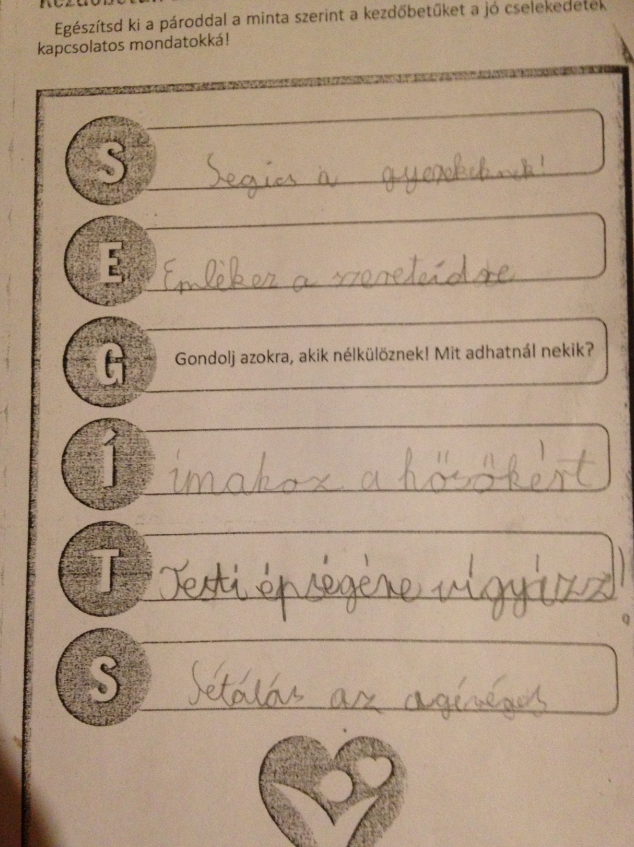 Egészítsd ki a pároddal a minta szerint a kezdőbetűket a jó cselekedetek
kapcsolatos mondatokká!
S Segics a gyerekeknek!
E Emléker a szereteidre
G Gondolj azokra, akik nélkülöznek! Mit adhatnál nekik?
Í imakoz a hősökért
T Testi épségére vigyázz!
S Sétálás az